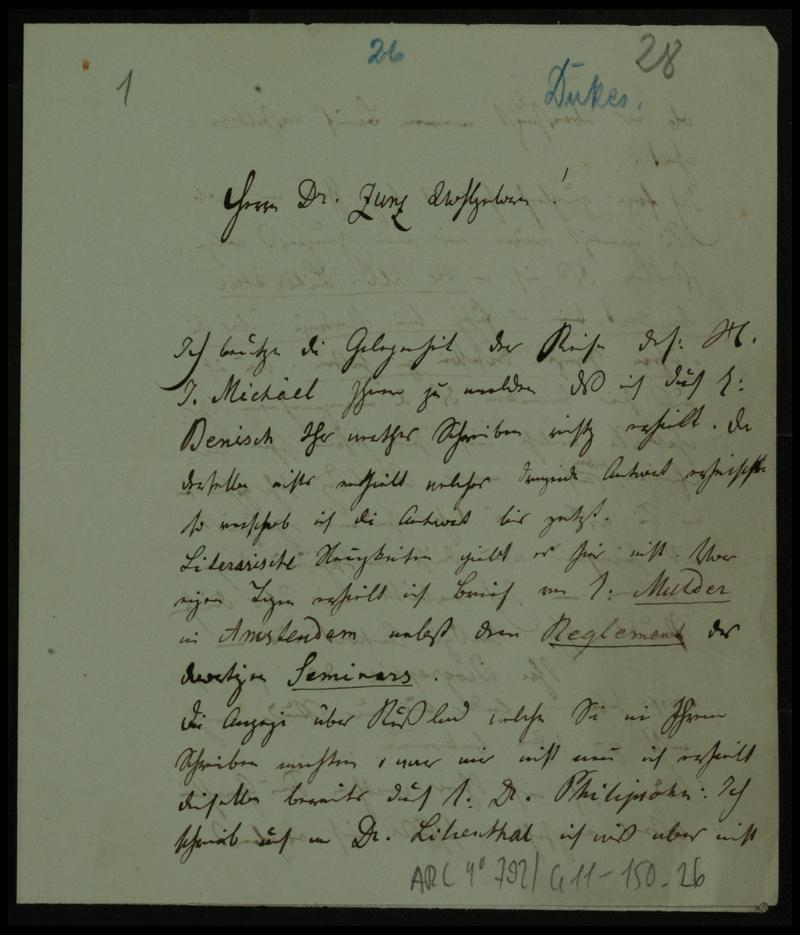 26
28
1
Dukes.
Herrn Dr. Zunz Wohlgeboren!
Ich benütze die Gelegenheit der Reise des H.
J. Michael Ihnen zu melden daß ich durch H:
Benisch Ihr werthes Schreiben richtig erhielt. Da
dasselbe nichts enthielt welches dringende Antwort erheischte
so verschob ich die Antwort bis jetzt.
Literarische Neuigkeiten giebt es hier nicht. Vor
einigen Tagen erhielt ich Brief von H. Mulder
in Amsterdam nebst dem Reglement des
dortigen Seminars.
Die Anzeige über Rußland welche Sie in Ihrem
Schreiben machten, war mir nicht neu ich erhielt
dieselbe bereits durch H. Dr. Philipsohn: Ich
schrieb auch an Dr. Lilienthal ich weiß aber nicht
ARC 4° 792/G11-150-26